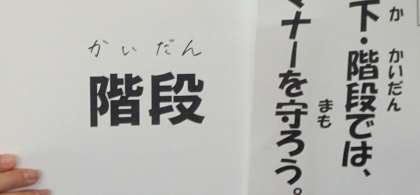 かいだん
階段
か かいだん
下・階段では、
まも
マナーを守ろう。